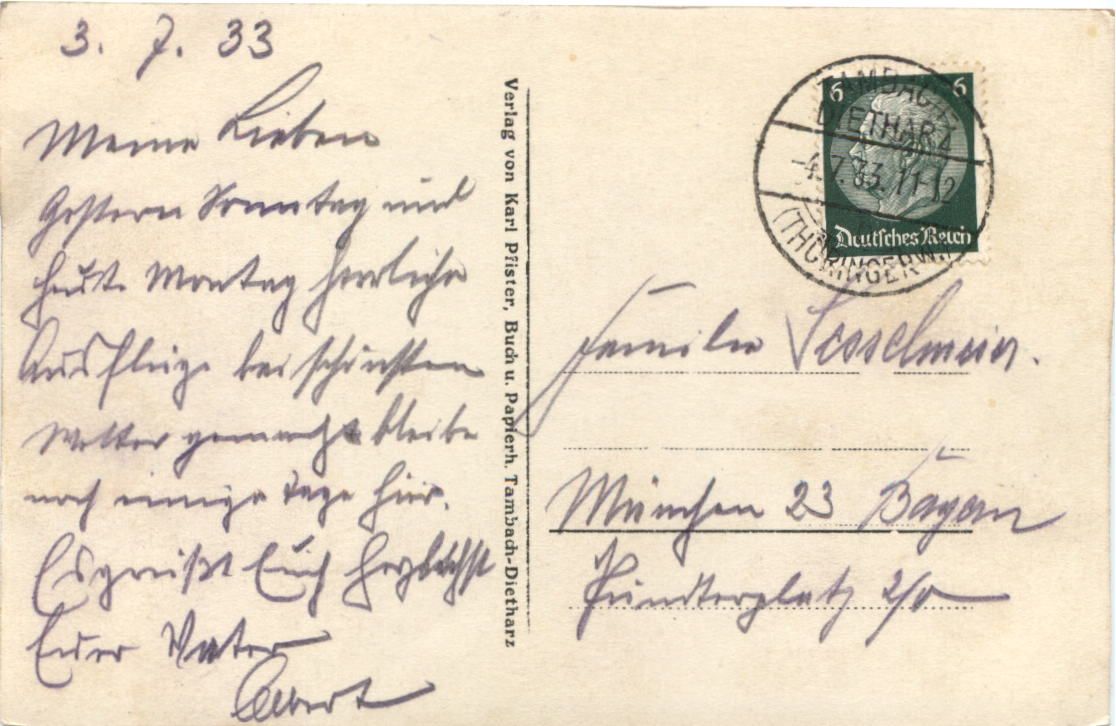 3. 7. 33
Meine Lieben
Gestern Sonntag und
heute Montag herrliche
Ausflüge bei schönsten
Wetter gemacht bleibe
noch einige Tage hier.
Es grüßt Euch herzlichst
Euer Vater
Albert
Verlag von Karl Pfister, Buch u. Papierh. Tambach-Dietharz
6 6
Deutsches Reich
TAMBACH-
DIETHARZ
-4.7.33. 11-12
(THÜRINGERW.)
Familie
München 23 Bayern
2/0